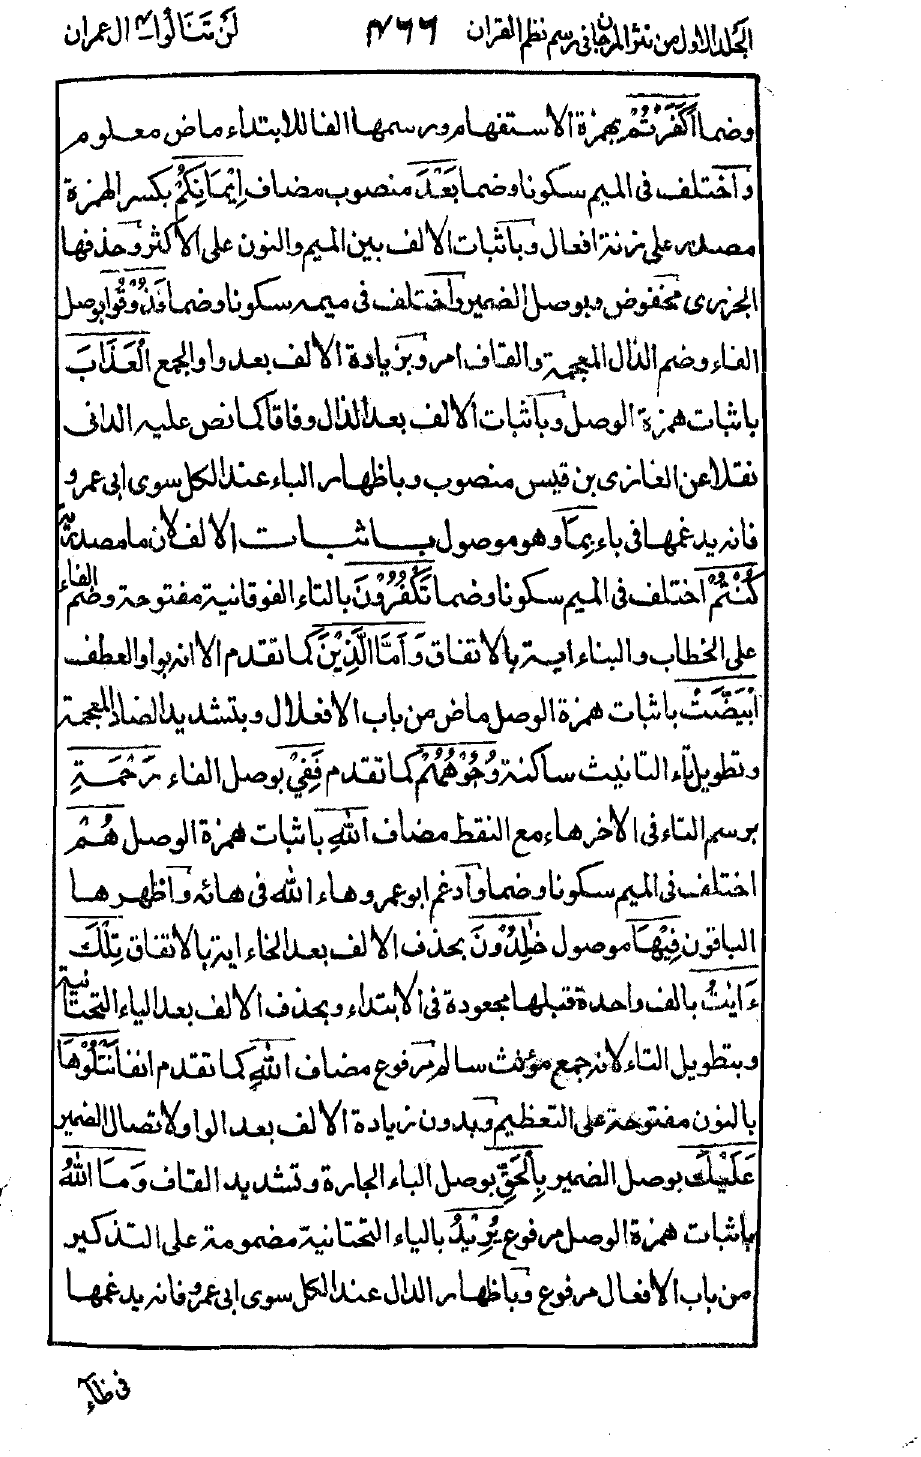 الجلد الاول من نثر المرجان فی رسم نظم القران ۴۶۶ لَنْ تَنَالُوا ۴ ال عمران
وضما اَكَفَرْتُمْ بهمزة الاستفهام ورسمها الفا للابتداء ماض معلوم
واختلف فی الميم سكونا وضما بَعْدَ منصوب مضاف اِيْمَانِكُمْ بكسر الهمزة
مصدر على زنة افعال وباثبات الالف بين الميم والنون على الاكثر وحذفها
الجزری مخفوض وبوصل الضمير واختلف فی ميمه سكونا وضما فَذُوْقُوا بوصل
الفاء وضم الذال المعجمة والقاف امر وبزيادة الالف بعد واو الجمع الْعَذَابَ
باثبات همزة الوصل وباثبات الالف بعد الذال وفاقا كما نص عليه الدانی
نقلا عن الغازی بن قيس منصوب وباظهار الباء عند الكل سوی ابی عمرو
فانه يدغمها فی باء بِمَا وهو موصول باثبات الالف لان ما مصدرية
كُنْتُمْ اختلف فی الميم سكونا وضما تَكْفُرُوْنَ بالتاء الفوقانية مفتوحة وضم الفاء
علی الخطاب والبناء اية بالاتفاق وَاَمَّا الَّذِيْنَ كما تقدم الا انه بواو العطف
ابْيَضَّتْ باثبات همزة الوصل ماض من باب الافعلال وبتشديد الضاد المعجمة
وتطويل تاء التانيث ساكنة وُجُوْهُهُمْ كما تقدم فَفِیْ بوصل الفاء رَحْمَةِ
برسم التاء فی الاخر هاء مع النقط مضاف اللّٰهِ باثبات همزة الوصل هُمْ
اختلف فی الميم سكونا وضما وادغم ابو عمرو هاء الله فی هائه واظهرها
الباقون فِيْهَا موصول خٰلِدُوْنَ بحذف الالف بعد الخاء اية بالاتفاق تِلْكَ
ءَايٰتُ بالف واحدة قبلها مجعودة فی الابتداء وبحذف الالف بعد الياء التحتانية
وبتطويل التاء لانه جمع مؤنث سالم مرفوع مضاف اللّٰهِ كما تقدم انفا نَتْلُوْهَا
بالنون مفتوحة علی التعظيم وبدون زيادة الالف بعد الواو لاتصال الضمير
عَلَيْكَ بوصل الضمير بِالْحَقِّ بوصل الباء الجارة وتشديد القاف وَمَا اللّٰهُ
باثبات همزة الوصل مرفوع يُرِيْدُ بالياء التحتانية مضمومة علی التذكير
من باب الافعال مرفوع وباظهار الدال عند الكل سوی ابی عمرو فانه يدغمها
فی ظاء